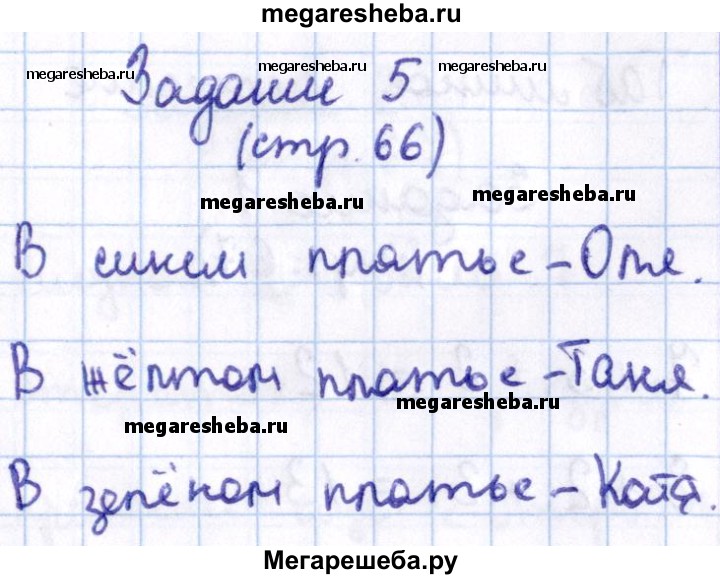 megaresheba.ru
megaresheba.ru megaresheba.ru megaresheba.ru
Задание 5
(стр. 66)
megaresheba.ru megaresheba.ru
В синем платье - Оля.
В жёлтом платье - Таня.
megaresheba.ru megaresheba.ru
В зелёном платье - Катя.
Мегарешеба.ру